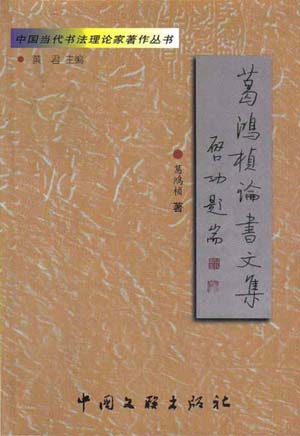 中国当代书法理论家著作丛书
●黄 君 主编
葛鸿桢論書文集
啓功題耑
●葛鸿桢 著
中国文联出版社